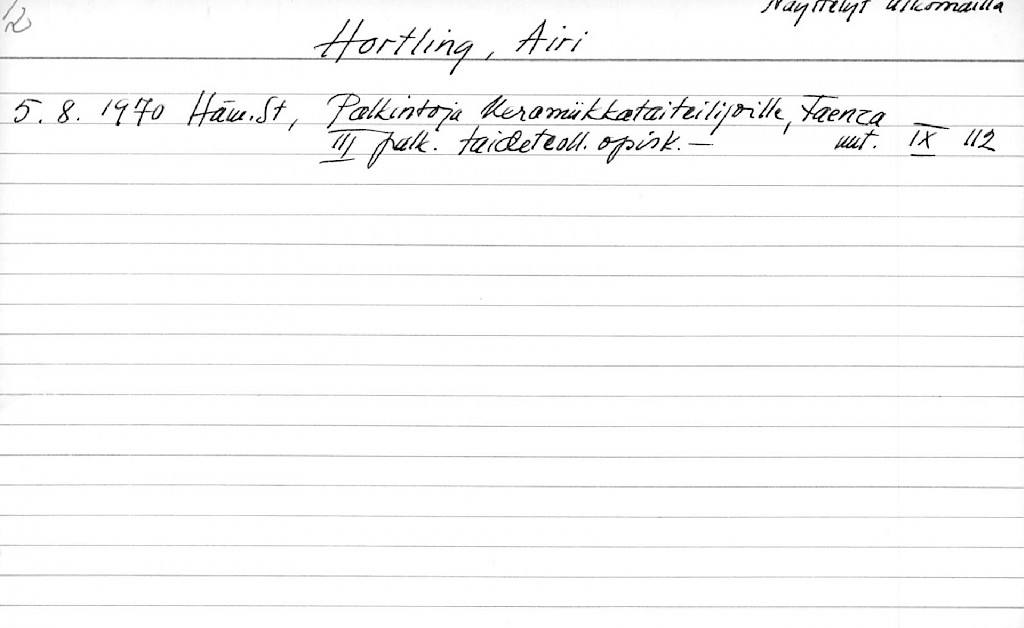 12
Näyttelyt ulkomailla
Hortling, Airi
5. 8. 1970 Häm.St, Palkintoja keramiikkataiteilijoille, Faenza
III palk. taideteoll. opisk. — uut. IX 112